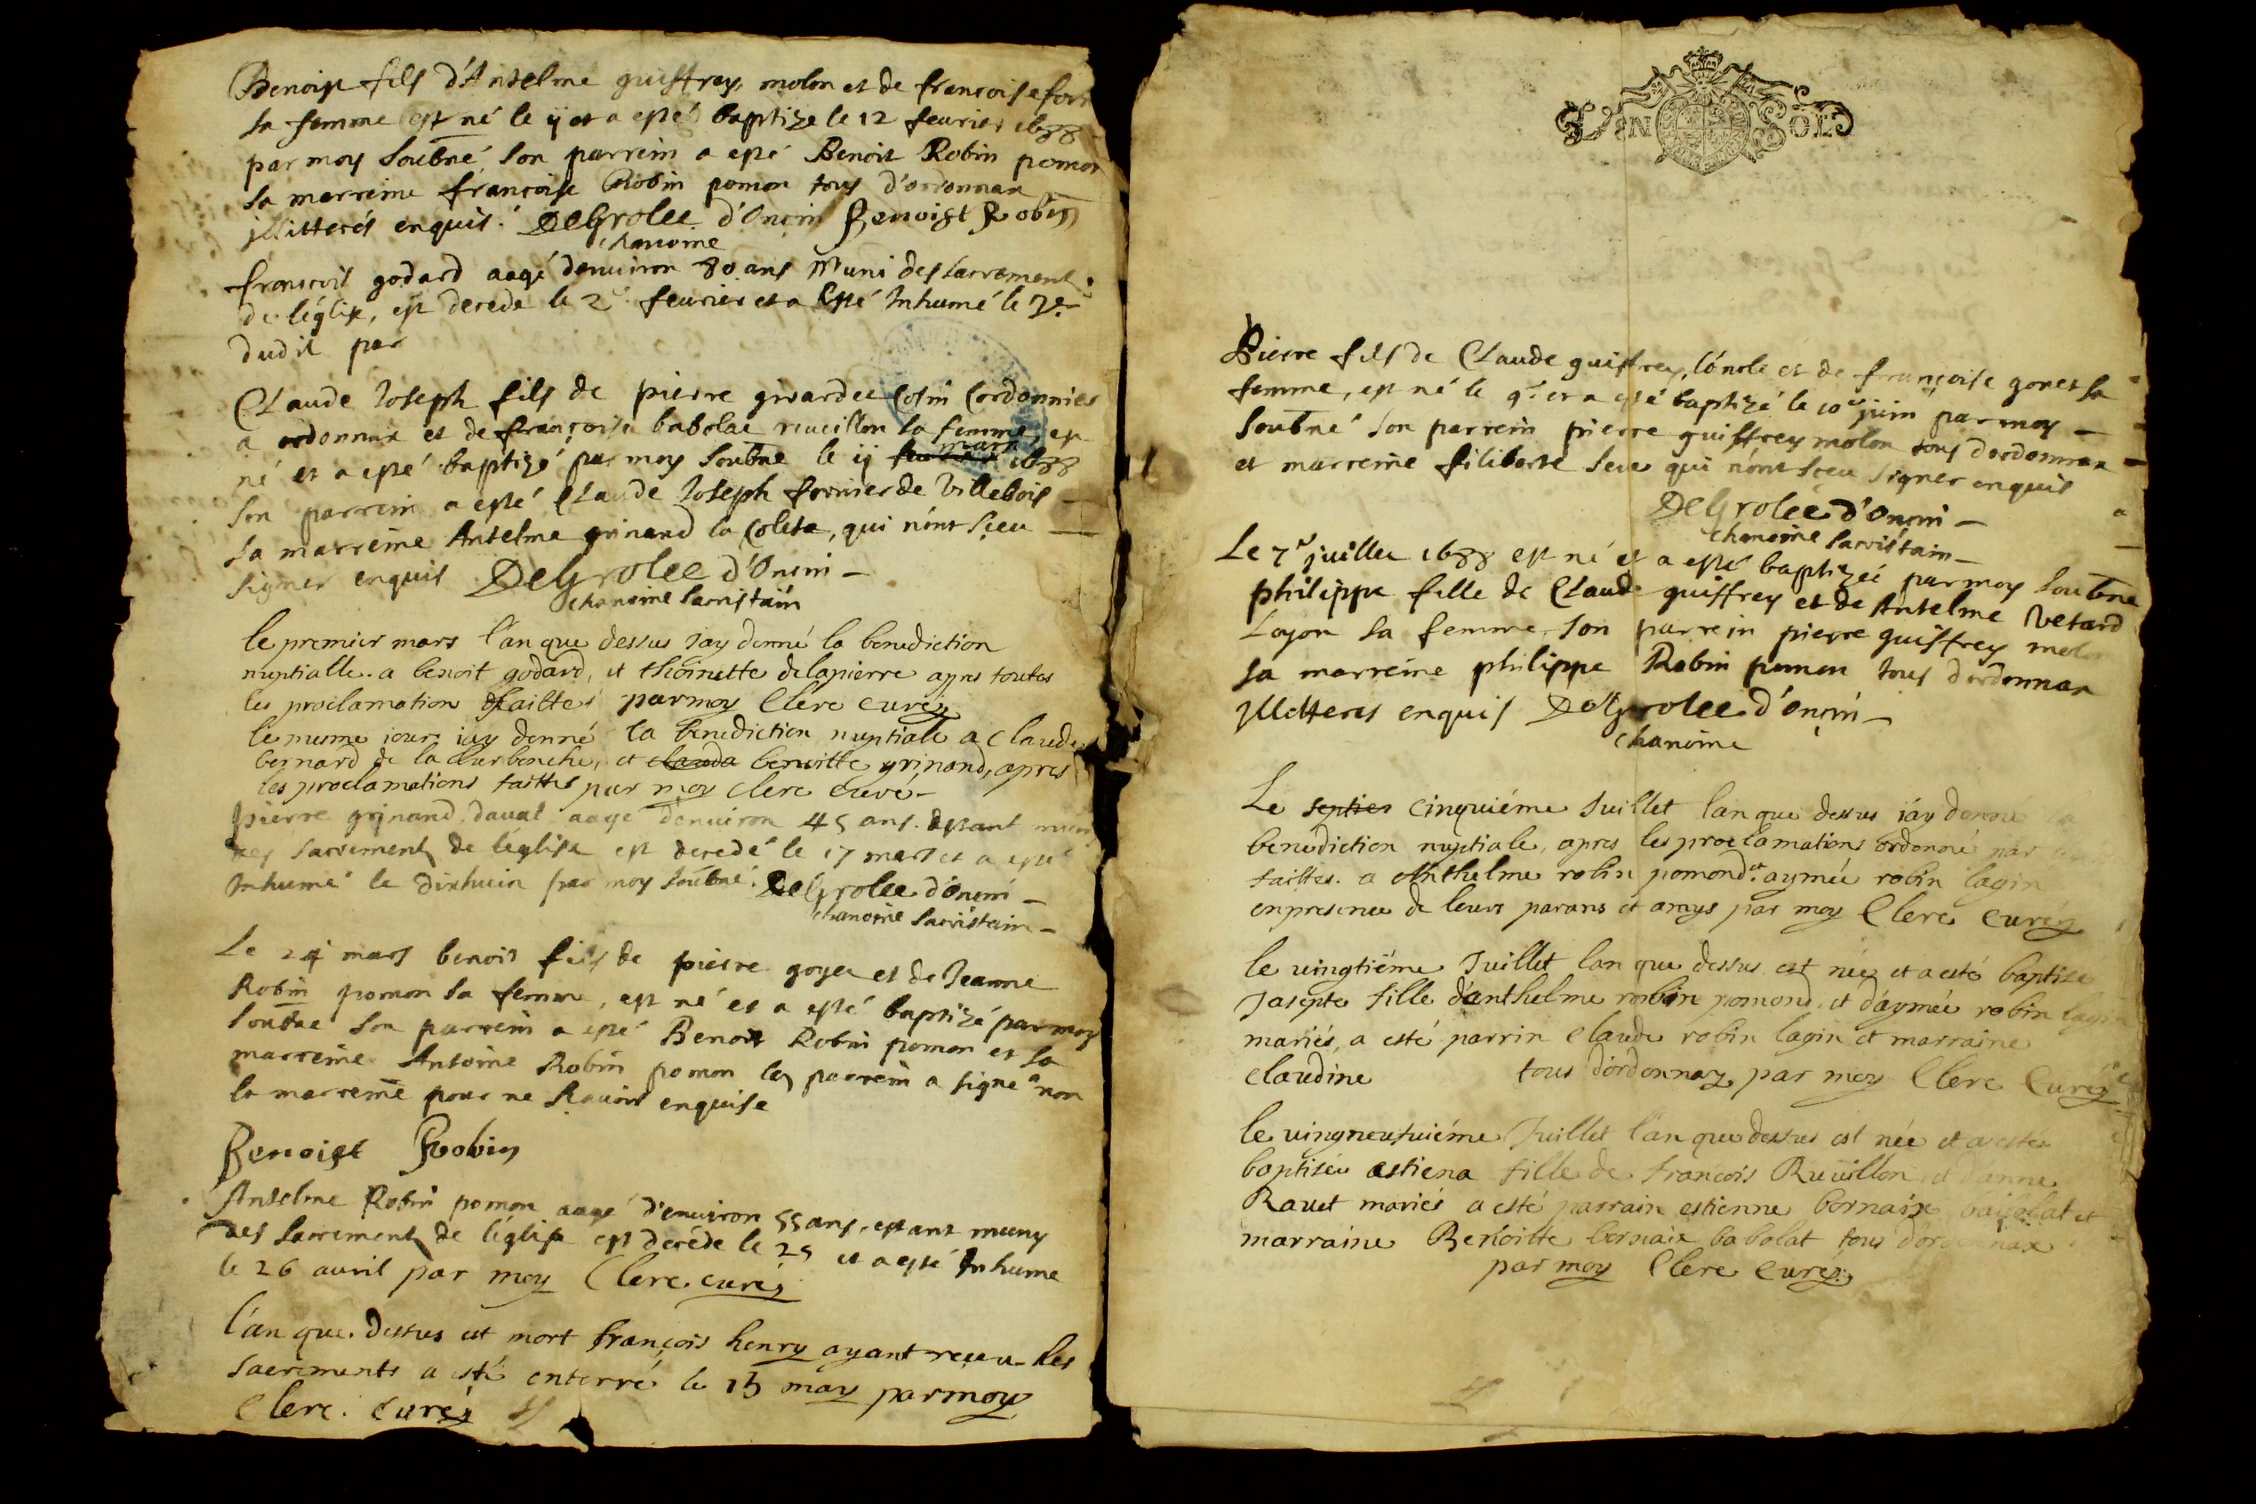 Benoist fils d'Antelme guiffrey, molon et de francoise forr
sa femme est né le ij et a esté baptize le 12 feurier 1688
par moy soubné son parrein a esté Benoit Robin pomon
sa marreine françoise Robin pomon tous d'ordonnax
jllitterés enquis. DeGrolee d'Oncin Benoist Robin
chanoine
francois godard aagé denuiron 80 ans muni des sacrements
de léglise, est decede le 2e feurier et a esté Inhumé le 3e
dudit par
Claude Joseph fils de pierre girardet Cosin Cordonnier
a ordonnax et de françoise babolat reueillon sa femme, est
né et a esté baptizé par moy soubne le ij feurier mars 1688
son parrein a esté Claude Joseph fornier de Villebois
sa marreine Antelme grinand la Coleta, qui n'ont sçeu
signer enquis DeGrolee d'Oncin
chanoine sacristain
le premier mars l'an que dessus jay donné la benediction
nuptialle a benoit godard, et thoinette delapierre apres toutes
les proclamation faittes par moy Clerc curé
le mesme jour jay donné la benediction nuptiale a claude
bernard de la Curbenche, et clauda benoitte grinand, apres
les proclamations faittes par moy Clerc curé
pierre grinand daual aagé denuiron 45 ans. estant muni
des sacrements de léglise est decedé le 17 mars et a esté
Inhumé le dixhuit par moy soubné. DeGrolee d'Oncin
chanoine sacristain
Le 24 mars benoit fils de pierre goyet et de Jeanne
Robin pomon sa femme, est né et a esté baptizé par moy
soubne son parrein a esté Benoit Robin pomon et sa
marreine Antoine Robin pomon le parrein a signé non
la marreine pour ne scauoir enquise
Benoist Robin
Antelme Robin pomon aagé d'enuiron 55 ans, estant muny
des sacrements de léglise est décéde le 25 et a esté Inhume
le 26 auril par moy Clerc. curé
l'an que dessus est mort françois henry ayant reçeu les
sacrements a esté enterré le 15 may par moy
Clerc. curé
GEN SOL
Pierre fils de Claude guiffrey, et de françoise gonet sa
femme, est né le 9e et a esté baptizé le 10e juin par moy
soubné son parrein pierre guiffrey molon tous dordonnax
et marreine filiberte seue qui n'ont sçeu signer enquis
DeGrolee d'Oncin
chanoine sacristain
Le 7e juillet 1688 est né et a esté baptizeé par moy soubne
philippe fille de Claude guiffrey et de Antelme Vetard
Loyon sa femme, son parrein pierre guiffrey molon
sa marreine philippe Robin pomon tous dordonnax
jlletteres enquis DeGrolee d'Oncin
chanoine
Le septies cinquiéme Juillet lan que dessus jáy donné la
benediction nuptiale, apres les proclamations ordonné par
faittes. a Anthelme robin pomond et aymée robin lagin
en presence de leurs parans et amys par moy Clerc curé
le uingtiéme Juillet lan que dessus est née et a esté baptisé
Josepte fille d'anthelme robin pomond, et d'aymée robin lagin
mariés, a esté parrin claude robin lagin et marraine
claudine tous d'ordonnaz par moy Clerc Curé
le uingneufuiéme Juillet l'an que dessus est née et a esté
baptisée estiena fille de francois Reuillon et anne
Rauet mariés a esté parrain estienne bernaix babolat et
marraine Benoitte bernaix babolat tous d'ordonnax
par moy Clerc Curé